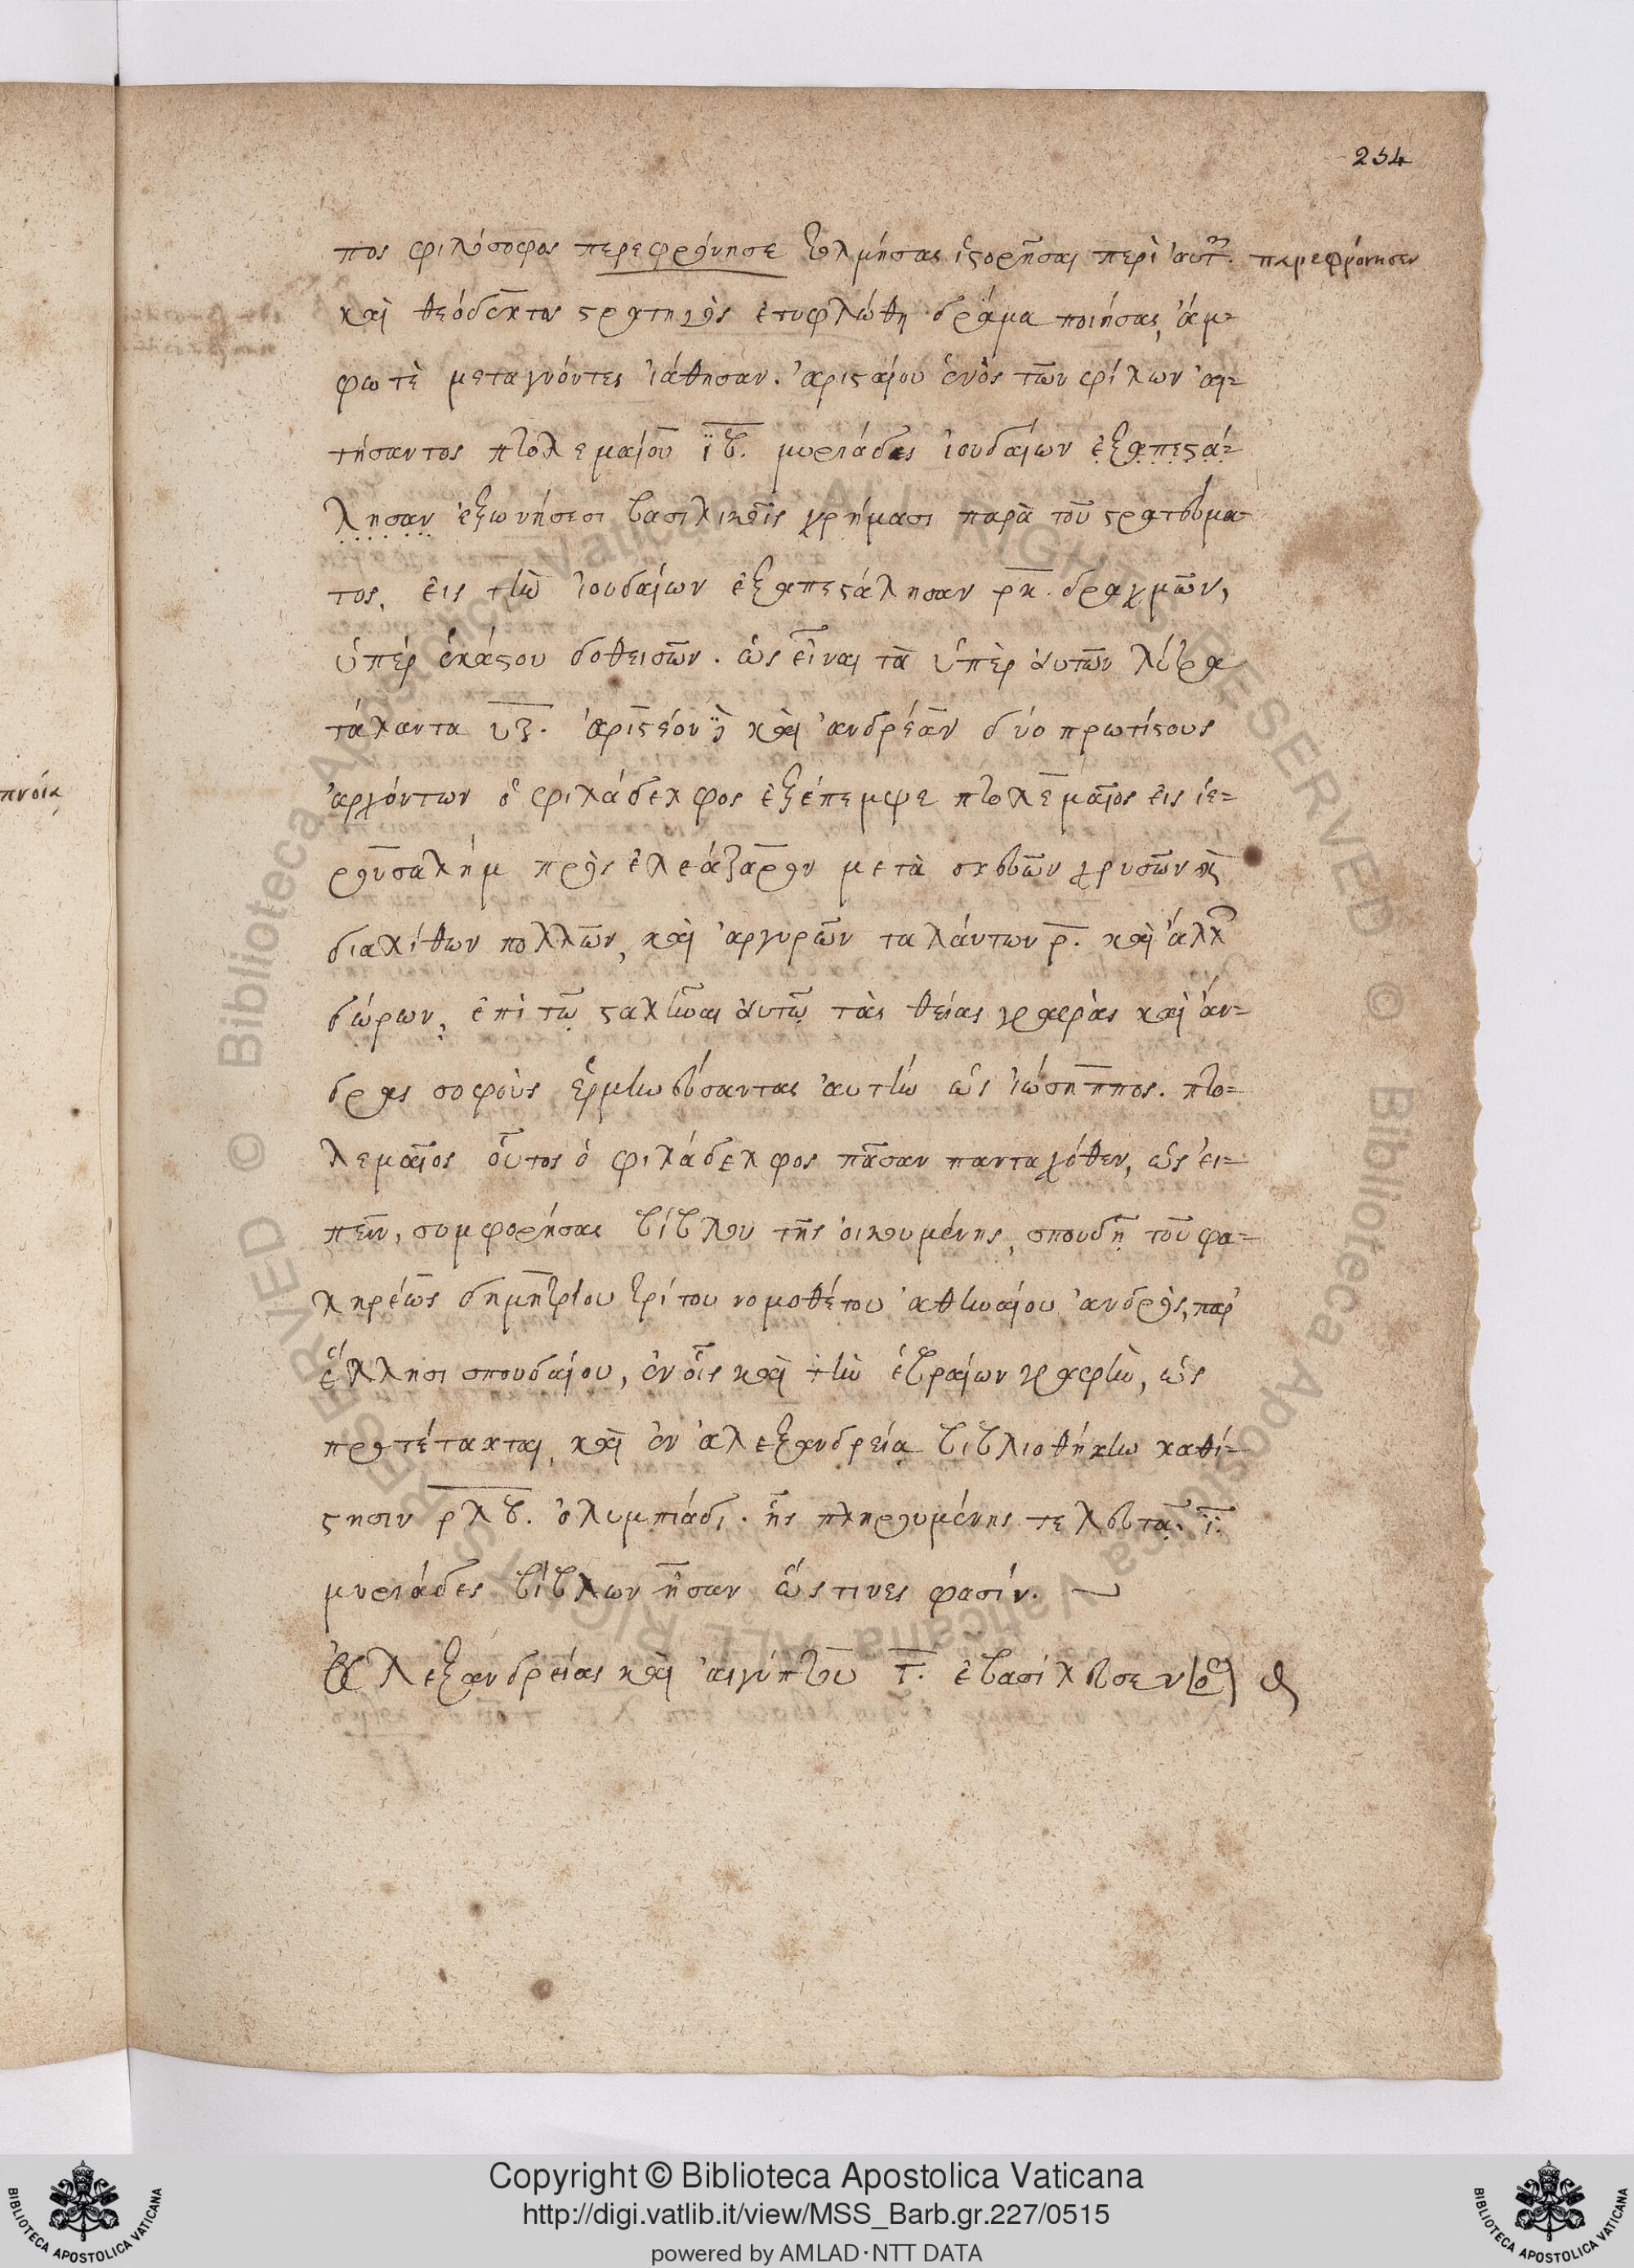 254
πος φιλόσοφος περεφρόνησε τολμήσας ἱστορῆσαι περὶ αὐτῶν. παρεφρόνησεν
καὶ θεόδεκτος στρατηγὸς ἐτυφλώθη δράμα ποιήσας, ἄμ-
φω τὲ μεταγνόντες ἰάθησαν. ἀρισταίου ἑνὸς τῶν φίλων αἰ-
τήσαντος πτολεμαίου ιβ. μυριάδες ἰουδαίων ἐξαπεστά-
λησαν ἐξωνήσεσι βασιλικοῖς χρήμασι παρὰ τοῦ στρατεύμα-
τος, εἰς τὴν ἰουδαίων ἐξαπεστάλησαν ρκ δραχμῶν,
ὑπὲρ ἑκάστου δοθεισῶν. ὡς εἶναι τὰ ὑπὲρ αὐτῶν λύτρα
τάλαντα υξ. ἀριστέον καὶ ἀνδρέαν δύο πρωτίστους
ἀρχόντων ὁ φιλάδελφος ἐξέπεμψε πτολεμαῖος εἰς ἱε-
ρουσαλήμ πρὸς ἐλεάζαρον μετὰ σκευῶν χρυσῶν καὶ
διαλίθων πολλῶν, καὶ ἀργυρῶν ταλάντων ρ. καὶ ἄλλων
δώρων, ἐπὶ τῷ σταλῆναι αὐτῷ τὰς θείας γραφὰς καὶ ἄν-
δρας σοφοὺς ἑρμηνεύσαντας αὐτὴν ὡς ἰώσηππος. πτο-
λεμαῖος οὗτος ὁ φιλάδελφος πᾶσαν πανταχόθεν, ὡς εἰ-
πεῖν, συμφορήσας βίβλον τῆς οἰκουμένης, σπουδῇ τοῦ φα-
ληρέως δημητρίου τρίτου νομοθέτου ἀθηναίου ἀνδρὸς, παρ'
ἕλλησι σπουδαίου, ἐν οἷς καὶ τὴν ἑβραίων γραφὴν, ὡς
προτέτακται, καὶ ἐν ἀλεξανδρείᾳ βιβλιοθήκην καθί-
στησιν ρλβ. ὀλυμπιάδι. ἧς πληρουμένης τελευτᾷ. ι.
μυριάδες βίβλων ἦσαν ὥς τινες φασίν.
Ἀλεξανδρείας καὶ αἰγύπτου γ. ἐβασίλευσεν
Copyright © Biblioteca Apostolica Vaticana
http://digi.vatlib.it/view/MSS_Barb.gr.227/0515
powered by AMLAD·NTT DATA
BIBLIOTECA APOSTOLICA VATICANA
BIBLIOTECA APOSTOLICA VATICANA